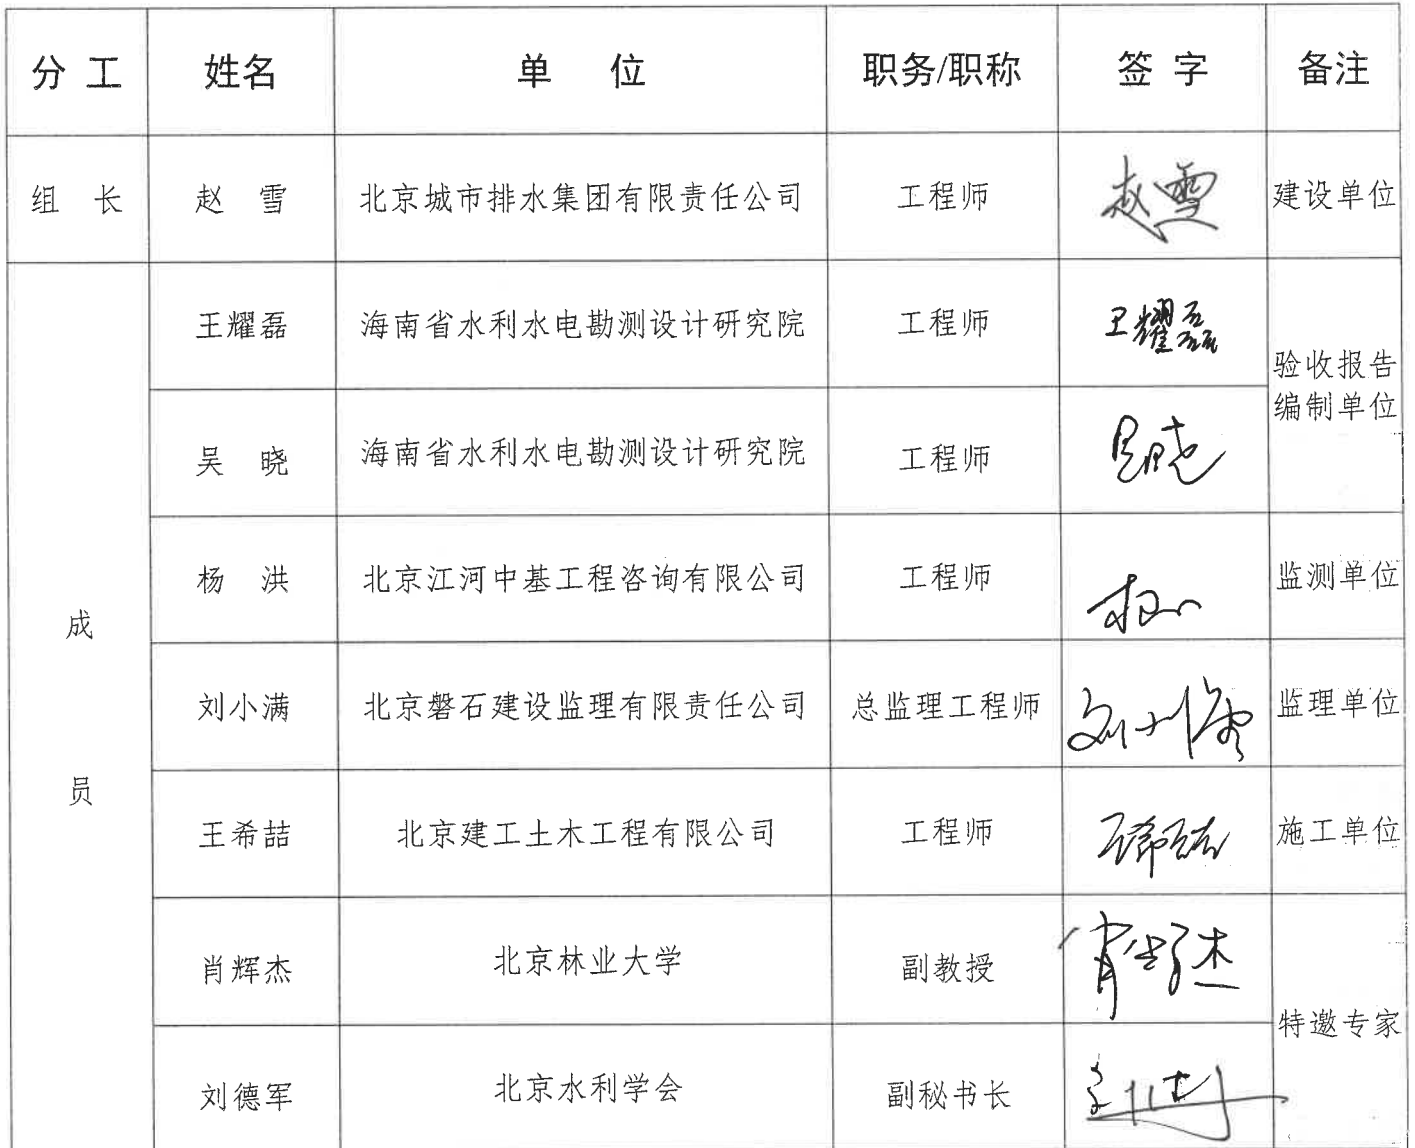 分 工 姓名 单 位 职务/职称 签 字 备注
组 长 赵 雪 北京城市排水集团有限责任公司 工程师 赵雪 建设单位
王耀磊 海南省水利水电勘测设计研究院 工程师 王耀磊
验收报告
编制单位
吴 晓 海南省水利水电勘测设计研究院 工程师 吴晓
杨 洪 北京江河中基工程咨询有限公司 工程师 监测单位
成
刘小满 北京磐石建设监理有限责任公司 总监理工程师 刘小满 监理单位
员
王希喆 北京建工土木工程有限公司 工程师 王希喆 施工单位
肖辉杰 北京林业大学 副教授 肖辉杰
特邀专家
刘德军 北京水利学会 副秘书长